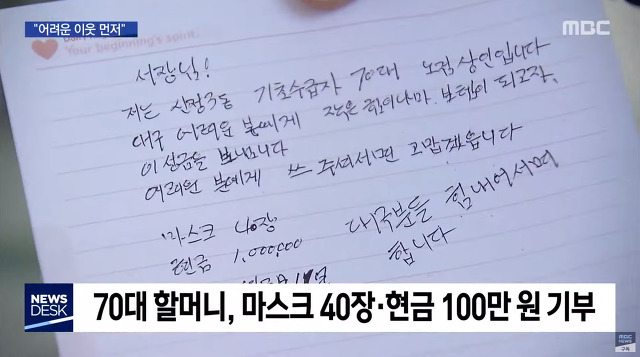 "어려운 이웃 먼저"
MBC
Your beginning's spirit.
서장님!
저는 산정3동 기초수급자 70대 노점상인입니다
대구 어려운 분에게 작은 힘이나마 보템이 되고자
이 성금을 보냅니다
어려운 분에게 쓰 주셔서면 고맙겠습니다
마스크 40장
현금 1,000,000
대국분들 힘내어서며
합니다
NEWS DESK
70대 할머니, 마스크 40장·현금 100만 원 기부
MBC NEWS
구독